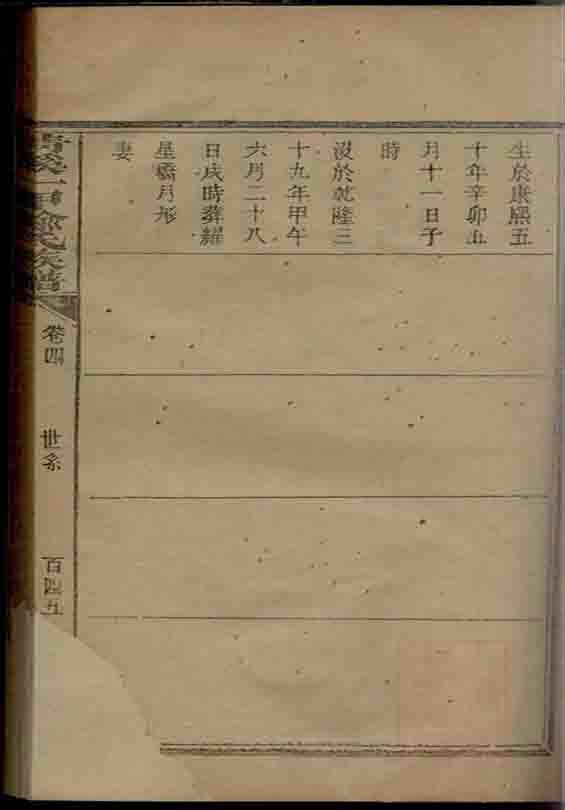 生於康熙五
十年辛卯五
月十一日子
時
沒於乾隆三
十九年甲午
六月二十八
日戌時葬耀
星橋月形
妻
族譜
卷四
世系
百四五